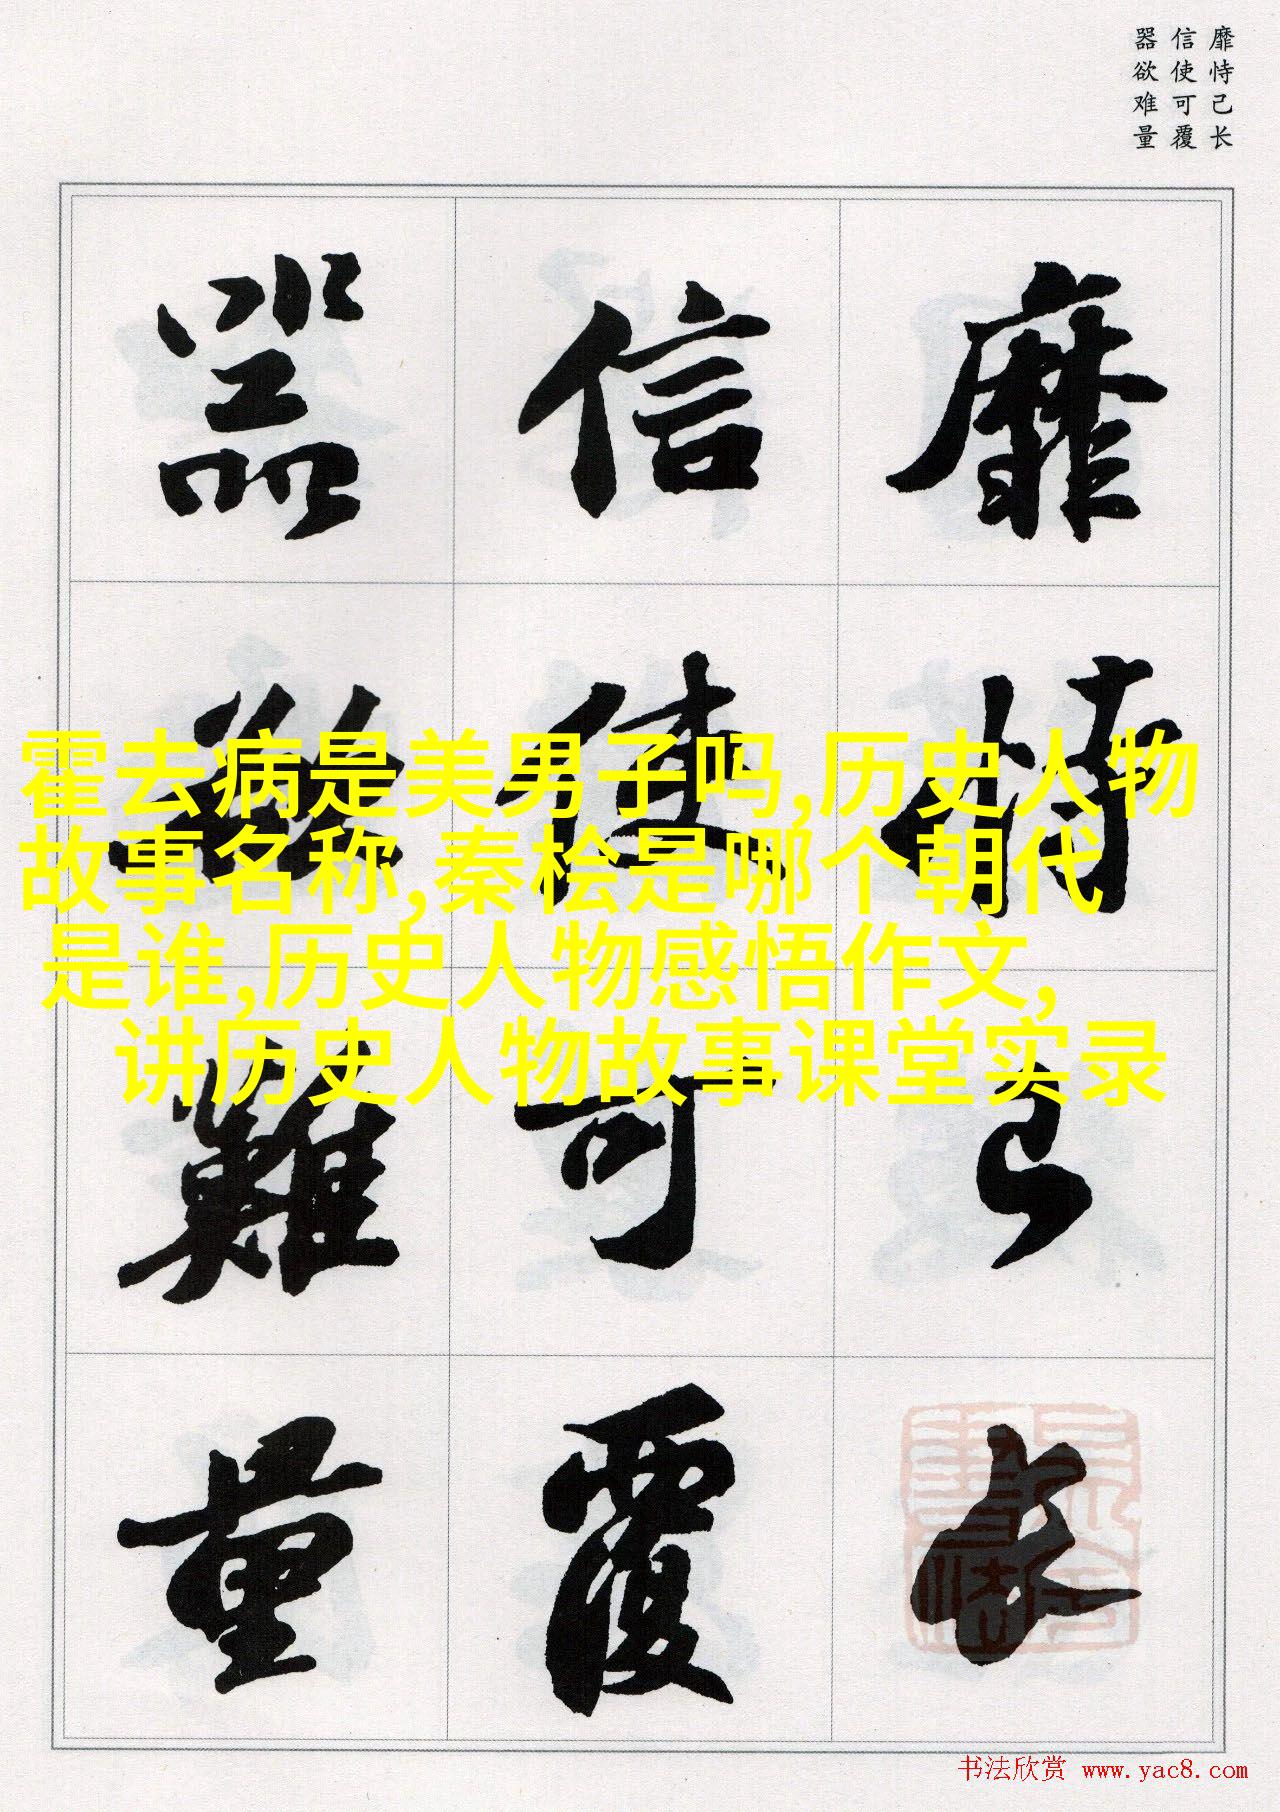 靡恃己长
信使可覆
器欲难量
靡恃己长
信使可覆
器欲難量
霍去病是美男子吗,历史人物
故事名称,秦桧是哪个朝代
是谁,历史人物感悟作文,
讲历史人物故事课堂实录
书法欣赏 www.yac8.com